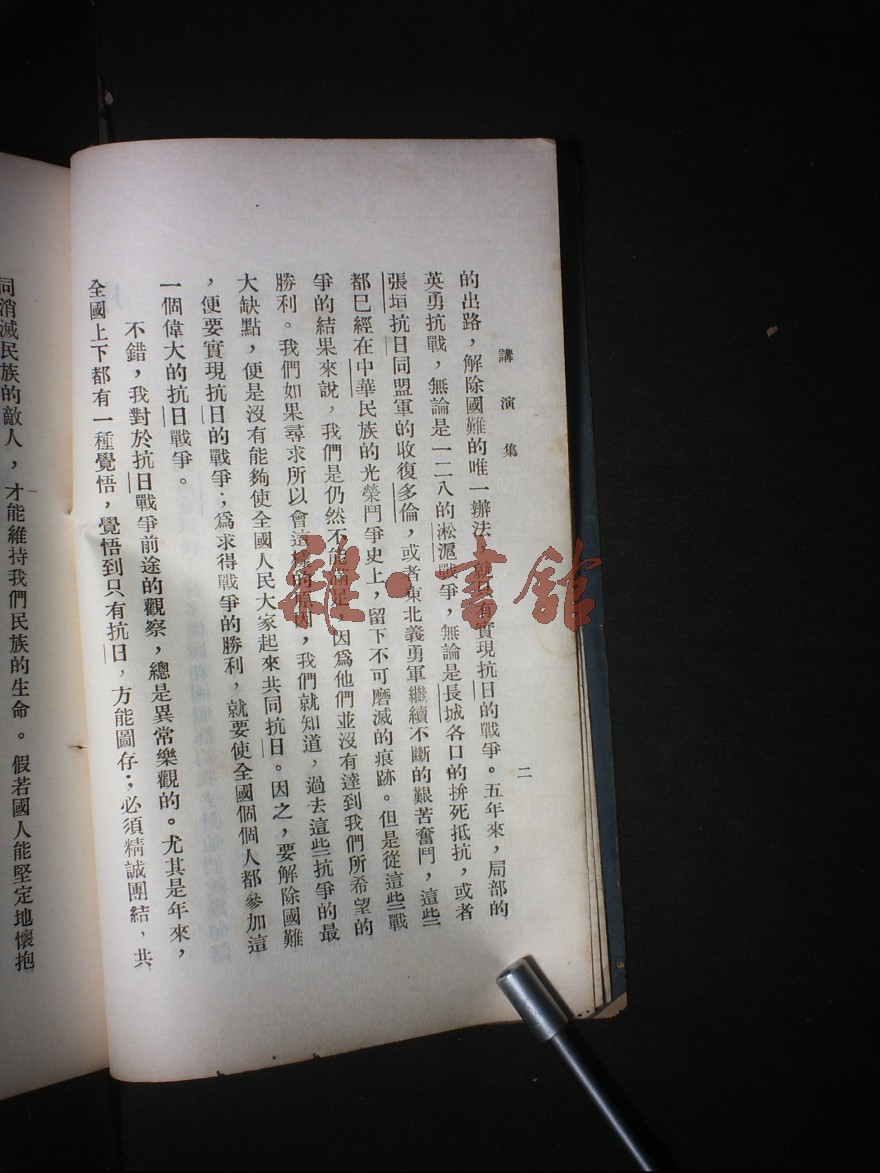 講演集
二
的出路，解除國難的唯一辦法，就只有實現抗日的戰爭。五年來，局部的
英勇抗戰，無論是一二八的淞滬戰爭，無論是長城各口的拚死抵抗，或者
張垣抗日同盟軍的收復多倫，或者東北義勇軍繼續不斷的艱苦奮鬥，這些
都已經在中華民族的光榮鬥爭史上，留下不可磨滅的痕跡。但是從這些戰
爭的結果來說，我們是仍然不能滿足，因爲他們並沒有達到我們所希望的
勝利。我們如果尋求所以會這樣的原因，我們就知道，過去這些抗爭的最
大缺點，便是沒有能夠使全國人民大家起來共同抗日。因之，要解除國難
，便要實現抗日的戰爭；爲求得戰爭的勝利，就要使全國個個人都參加這
一個偉大的抗日戰爭。
不錯，我對於抗日戰爭前途的觀察，總是異常樂觀的。尤其是年來，
全國上下都有一種覺悟，覺悟到只有抗日，方能圖存；必須精誠團結，共
同消滅民族的敵人，才能維持我們民族的生命。假若國人能堅定地懷抱
雜·書館